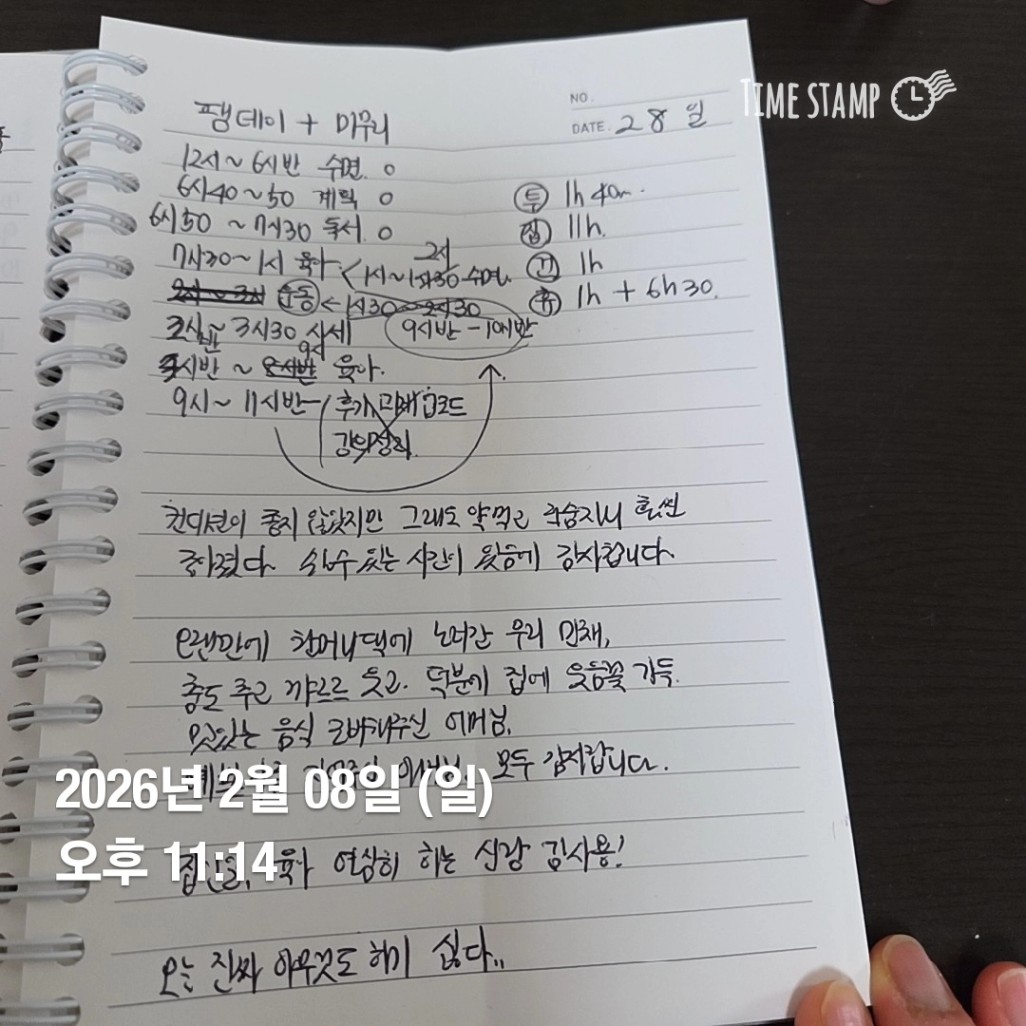 TIME STAMP
NO.
DATE. 2 8 일
팸데이 + 마무리
12시~ 6시반 수면. O
6시40~50 계획 O
6시50 ~ 7시30 독서. O
7시30~ 1시 육아 < 1시~ 30 수면
2시
2시 ~ 3시 운동 < 1시30 ~ 2시30
9시반 - 10시반
2시반~ 3시30
시반 ~ 8시반 육아.
9시
9시~ 11시반
강의정리
투 1h 40m.
집 11h.
1h
휴 1h + 6h 30.
컨디션이 좋지 않았지만 그래도 약먹고 훨씬
수 있는 시간이 있음에 감사합니다
오랜만에 할머니댁에 놀러간 우리
춤도 추고 까르르 웃고. 덕분에 집에 웃음꽃 가득.
맛있는 음식 어머님,
모두 감사합니다.
2026년 2월 08일 (일)
오후 11:14
육아 열심히 하는 신랑 감사용!
오늘 진짜 아무것도 하기 싫다..